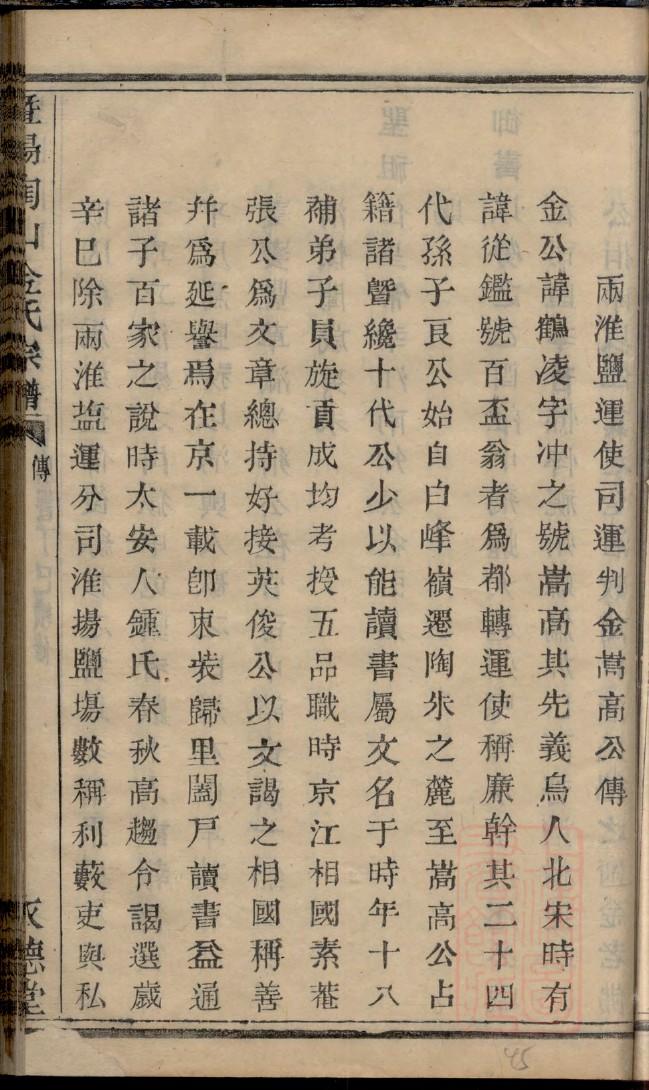 兩淮鹽運使司運判金嵩高公傳
金公諱鶴凌字冲之號嵩高其先義烏人北宋時有
諱從鑑號百盃翁者爲都轉運使稱廉幹其二十四
代孫子良公始自白峰嶺遷陶朱之麓至嵩高公占
籍諸曁纔十代公少以能讀書屬文名于時年十八
補弟子員旋貢成均考授五品職時京江相國素菴
張公爲文章總持好接英俊公以文謁之相國稱善
幷爲延譽焉在京一載卽束裝歸里闔戸讀書益通
諸子百家之說時太安人鍾氏春秋高趨令謁選歲
辛巳除兩淮塩運分司淮揚鹽塲數稱利藪吏與私
曁陽陶山金氏宗譜
傳
德堂
45